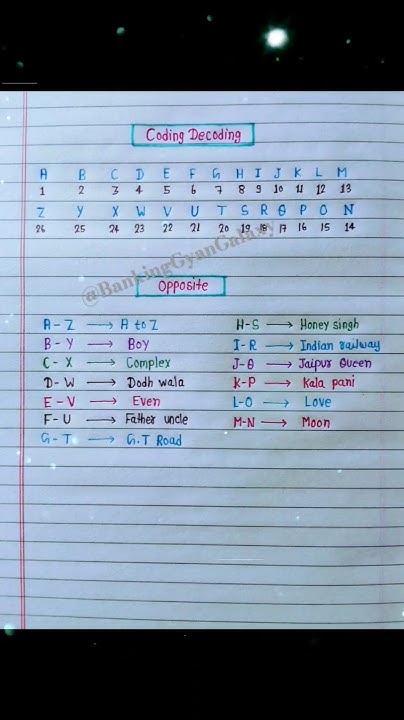 Coding Decoding
A B C D E F G H I J K L M
1 2 3 4 5 6 7 8 9 10 11 12 13
Z Y X W V U T S R Q P O N
26 25 24 23 22 21 20 19 18 17 16 15 14
@BankingGyanGalaxy
Opposite
A - Z → A to Z
B - Y → Boy
C - X → Complex
D - W → Dodh wala
E - V → Even
F - U → Father uncle
G - T → G.T Road
H-S → Honey singh
I-R → Indian railway
J-Q → Jaipur Queen
K-P → Kala pani
L-O → Love
M-N → Moon